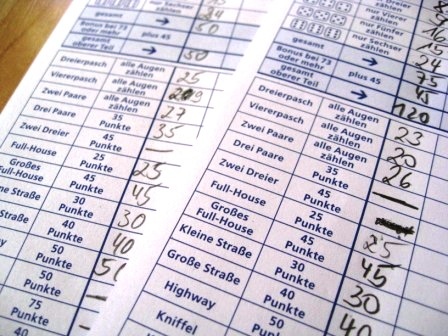 Sechser
zählen 24
gesamt → 50
Bonus bei 73
oder mehr plus 45
gesamt
oberer Teil → 50
Dreierpasch alle Augen
zählen 25
Viererpasch alle Augen
zählen
Zwei Paare alle Augen
zählen 27
Drei Paare 35
Punkte 35
Zwei Dreier 45
Punkte —
Full-House 25
Punkte 25
Großes
Full-House 45
Punkte 45
Straße 30
Punkte 30
Straße 40
Punkte 40
50
Punkte
50
Punkte
75
Punkte
nur Vierer
zählen 16
nur Fünfer
zählen 15
nur Sechser
zählen 24
gesamt → 75
Bonus bei 73
oder mehr plus 45 45
gesamt
oberer Teil → 120
Dreierpasch alle Augen
zählen 23
Viererpasch alle Augen
zählen 20
Zwei Paare alle Augen
zählen 26
Drei Paare 35
Punkte —
Zwei Dreier 45
Punkte
Full-House 25
Punkte 25
Großes
Full-House 45
Punkte 45
Kleine Straße 30
Punkte 30
Große Straße 40
Punkte 40
Highway 50
Punkte
Kniffel 50